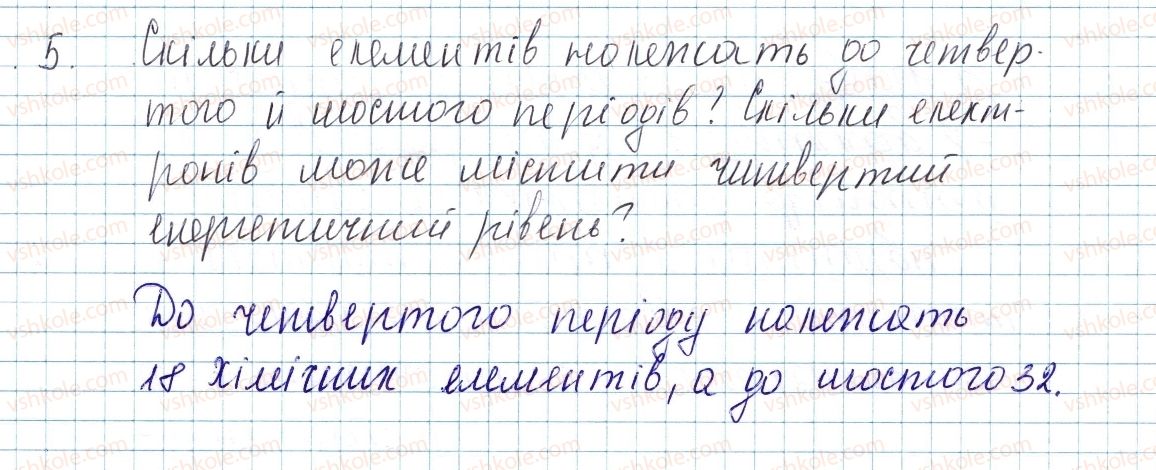 5. Скільки елементів належать до четвер-
того й шостого періодів? Скільки елект-
ронів може містити четвертий
енергетичний рівень?
До четвертого періоду належать
18 хімічних елементів, а до шостого 32.